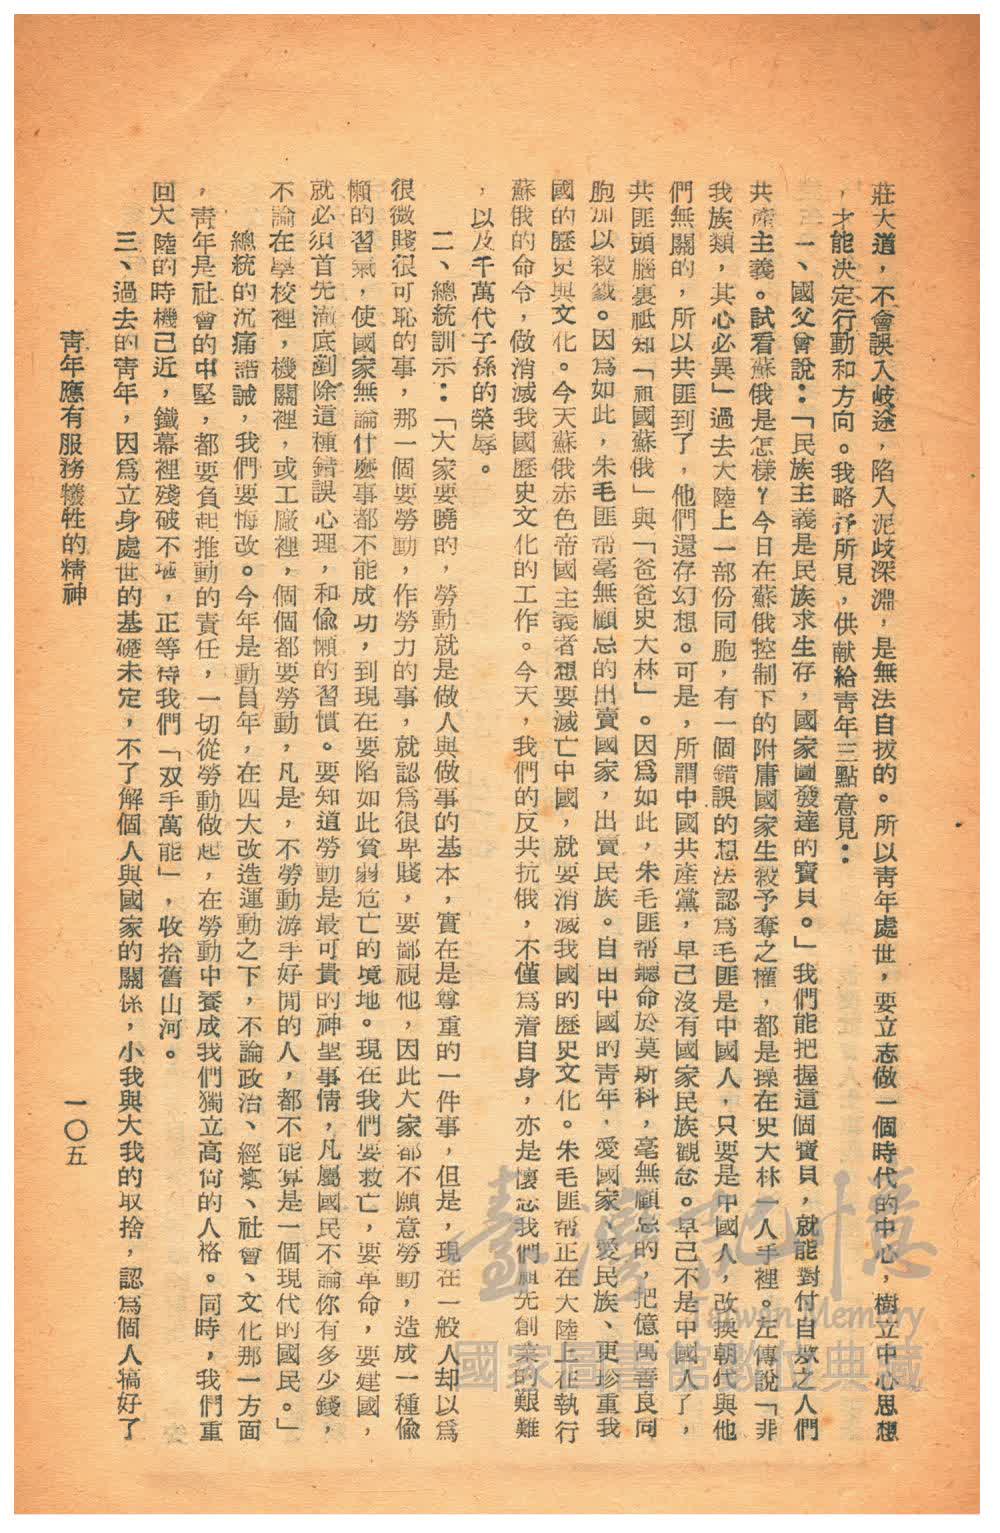 莊大道，不會誤入岐途，陷入泥歧深淵，是無法自拔的。所以靑年處世，要立志做一個時代的中心，樹立中心思想
，才能決定行動和方向。我略抒所見，供献給靑年三點意見：
一、國父曾說：「民族主義是民族求生存，國家圖發達的寶貝。」我們能把握這個寶貝，就能對付自欺之人們
共產主義。試看蘇俄是怎樣？今日在蘇俄控制下的附庸國家生殺予奪之權，都是操在史大林一人手裡。左傳說「非
我族類，其心必異」過去大陸上一部份同胞，有一個錯誤的想法認爲毛匪是中國人，只要是中國人，改換朝代與他
們無關的，所以共匪到了，他們還存幻想。可是，所謂中國共產黨，早已沒有國家民族觀念。早已不是中國人了，
共匪頭腦裏祇知「祖國蘇俄」與「爸爸史大林」。因爲如此，朱毛匪帮聽命於莫斯科，毫無顧忌的，把億萬善良同
胞加以殺戮。因爲如此，朱毛匪帮毫無顧忌的出賣國家，出賣民族。自由中國的靑年，愛國家、愛民族、更珍重我
國的歷史與文化。今天蘇俄赤色帝國主義者想要滅亡中國，就要消滅我國的歷史文化。朱毛匪帮正在大陸上在執行
蘇俄的命令，做消滅我國歷史文化的工作。今天，我們的反共抗俄，不僅爲着自身，亦是懷念我們祖先創業的艱難
，以及千萬代子孫的榮辱。
二、總統訓示：「大家要曉的，勞動就是做人與做事的基本，實在是尊重的一件事，但是，現在一般人却以爲
很微賤很可恥的事，那一個要勞動，作勞力的事，就認爲很卑賤，要鄙視他，因此大家都不願意勞動，造成一種偸
懶的習氣，使國家無論什麼事都不能成功，到現在要陷如此貧弱危亡的境地。現在我們要救亡，要革命，要建國
就必須首先澈底剷除這種錯誤心理，和偸懶的習慣。要知道勞動是最可貴的神聖事情，凡屬國民不論你有多少錢，
不論在學校裡，機關裡，或工廠裡，個個都要勞動，凡是，不勞動游手好閒的人，都不能算是一個現代的國民。」
總統的沉痛誥誡，我們要悔改。今年是動員年，在四大改造運動之下，不論政治、經濟、社會、文化那一方面
，靑年是社會的中堅，都要負起推動的責任，一切從勞動做起，在勞動中養成我們獨立高尙的人格。同時，我們重
回大陸的時機已近，鐵幕裡殘破不堪，正等待我們「双手萬能」，收拾舊山河。
三、過去的靑年，因爲立身處世的基礎未定，不了解個人與國家的關係，小我與大我的取捨，認爲個人搞好了
靑年應有服務犧牲的精神
一〇五
臺灣記憶
Taiwan Memory
國家圖書館數位典藏